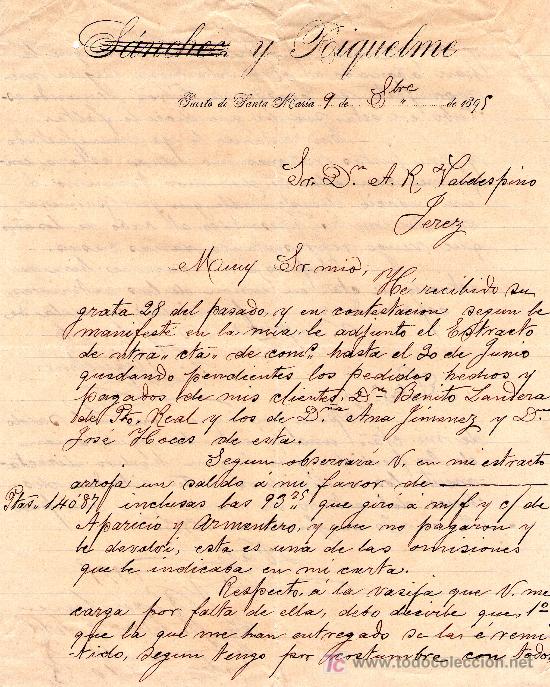 Sánchez y Riquelme
Puerto de Santa María 9 de Stre de 1895
Sr. Dn A. R. Valdespino
Jerez
Muuy Sr. mio,
He recibido su
grata 28 del pasado, y en contestacion segun le
manifeste en la mia le adjunto el Estracto
de ntra cta de comn hasta el 20 de Junio
quedando pendientes los pedidos hechos y
pagados de mis clientes, Dn Benito Landera
de Pto Real y los de Dña Ana Jimenez y Dn
Jose Hoces de esta.
Segun observará V. en mi estracto
arroja un saldo a mi favor de
Ptas 140'87 inclusas las 93'25 que giró a m/f y c/ de
Aparicio y Armentero, y que no pagaron y
le devolvi, esta es una de las omisiones
que le indicaba en mi carta.
Respecto á la vasija que V. me
carga por falta de ella, debo decirle que, 1º
que la que me han entregado se las é remi
tido, segun tengo por costumbre con todos
www.todocoleccion.net